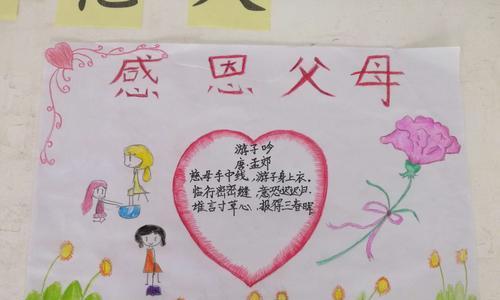 感恩父母
游子吟
唐·孟郊
慈母手中线,游子身上衣。
临行密密缝,意恐迟迟归.
谁言寸草心,报得三春晖